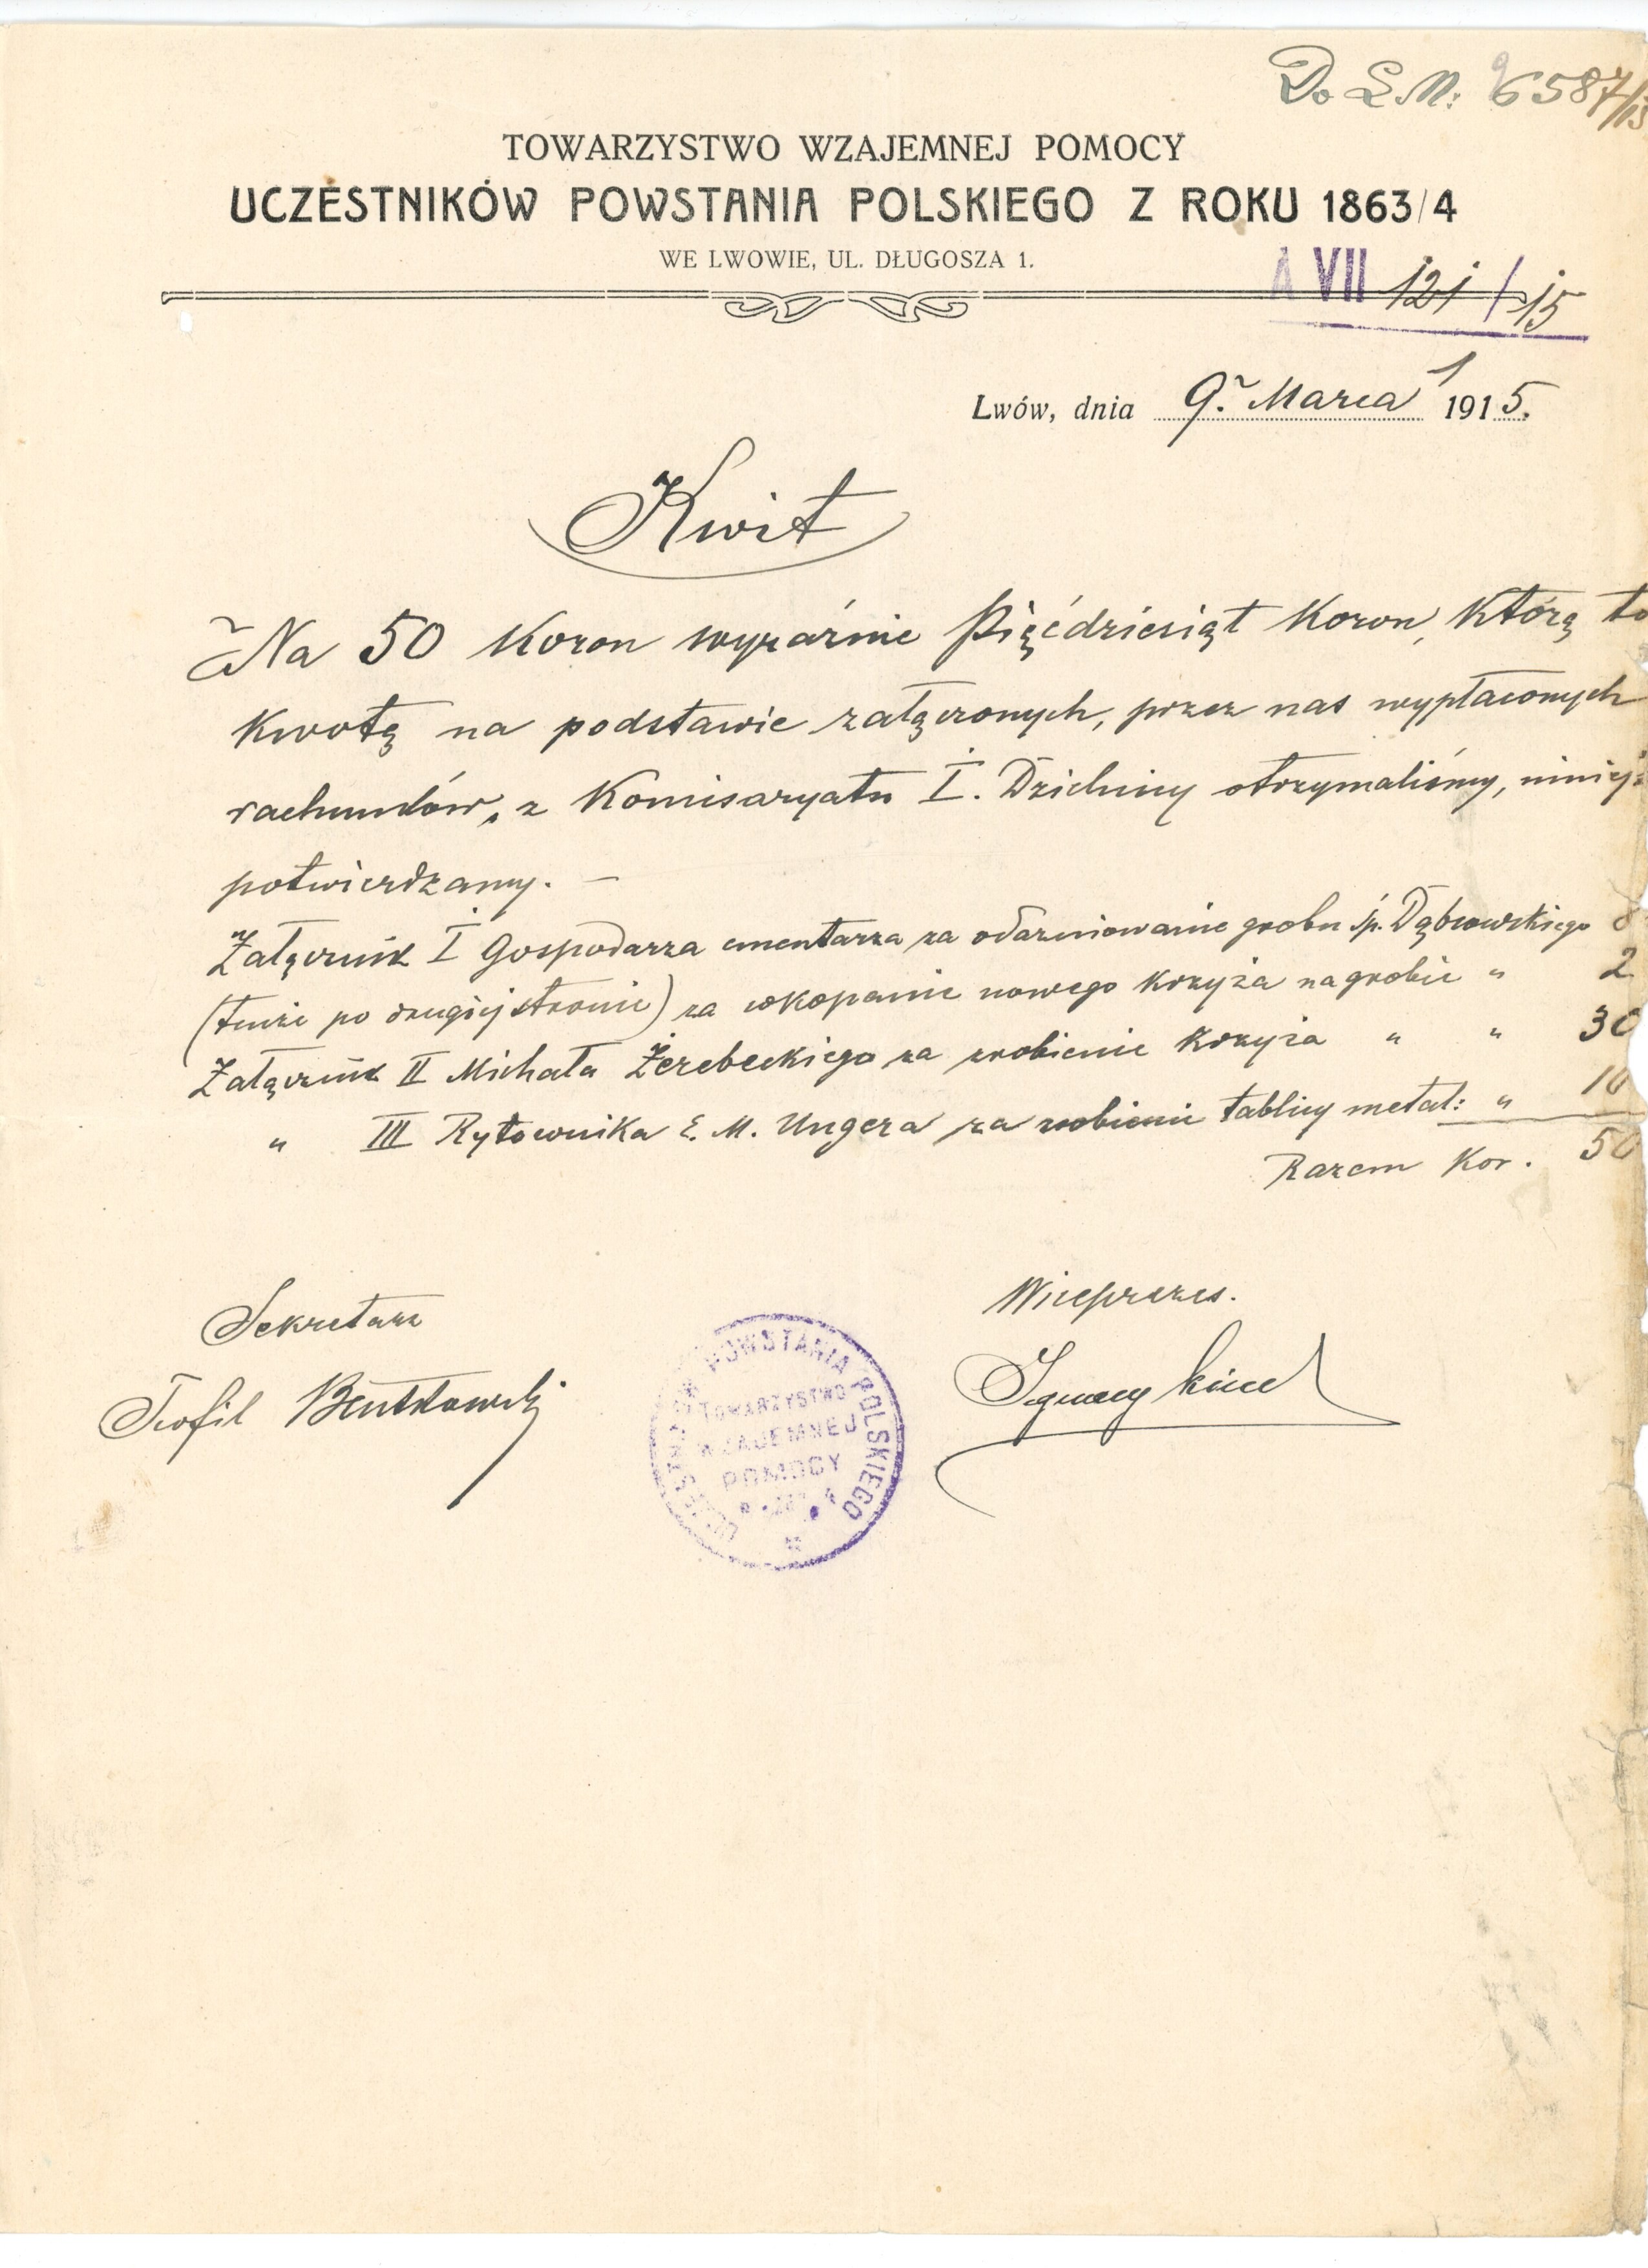 Do L.M: 6587/15
TOWARZYSTWO WZAJEMNEJ POMOCY
UCZESTNIKÓW POWSTANIA POLSKIEGO Z ROKU 1863/4
WE LWOWIE, UL. DŁUGOSZA 1.
A VII 121/15
Lwów, dnia 9. Marca 1915.
Kwit
Na 50 Koron wyraźnie Pięćdziesiąt Koron, którą to
kwotę na podstawie załączonych, przez nas wypłaconych
rachunków, z Komisaryatu I. Dzielnicy otrzymaliśmy, niniej
potwierdzamy. —
Załącznik I Gospodarza cmentarza za odarniowanie grobu śp. Dąbrowskiego 8
(tuże po drugiej stronie) za wkopanie nowego krzyża na grobie " 2
Załącznik II Michała Żerebeckiego za zrobienie krzyża " " 30
" III Rytownika E. M. Ungera za zrobienie tablicy metal: " 10
Razem Kor. 50
Sekretarz
Wiceprezes.
Teofil Bentkowski
Ignacy
UCZESTNIKÓW POWSTANIA POLSKIEGO
TOWARZYSTWO
WZAJEMNEJ
POMOCY